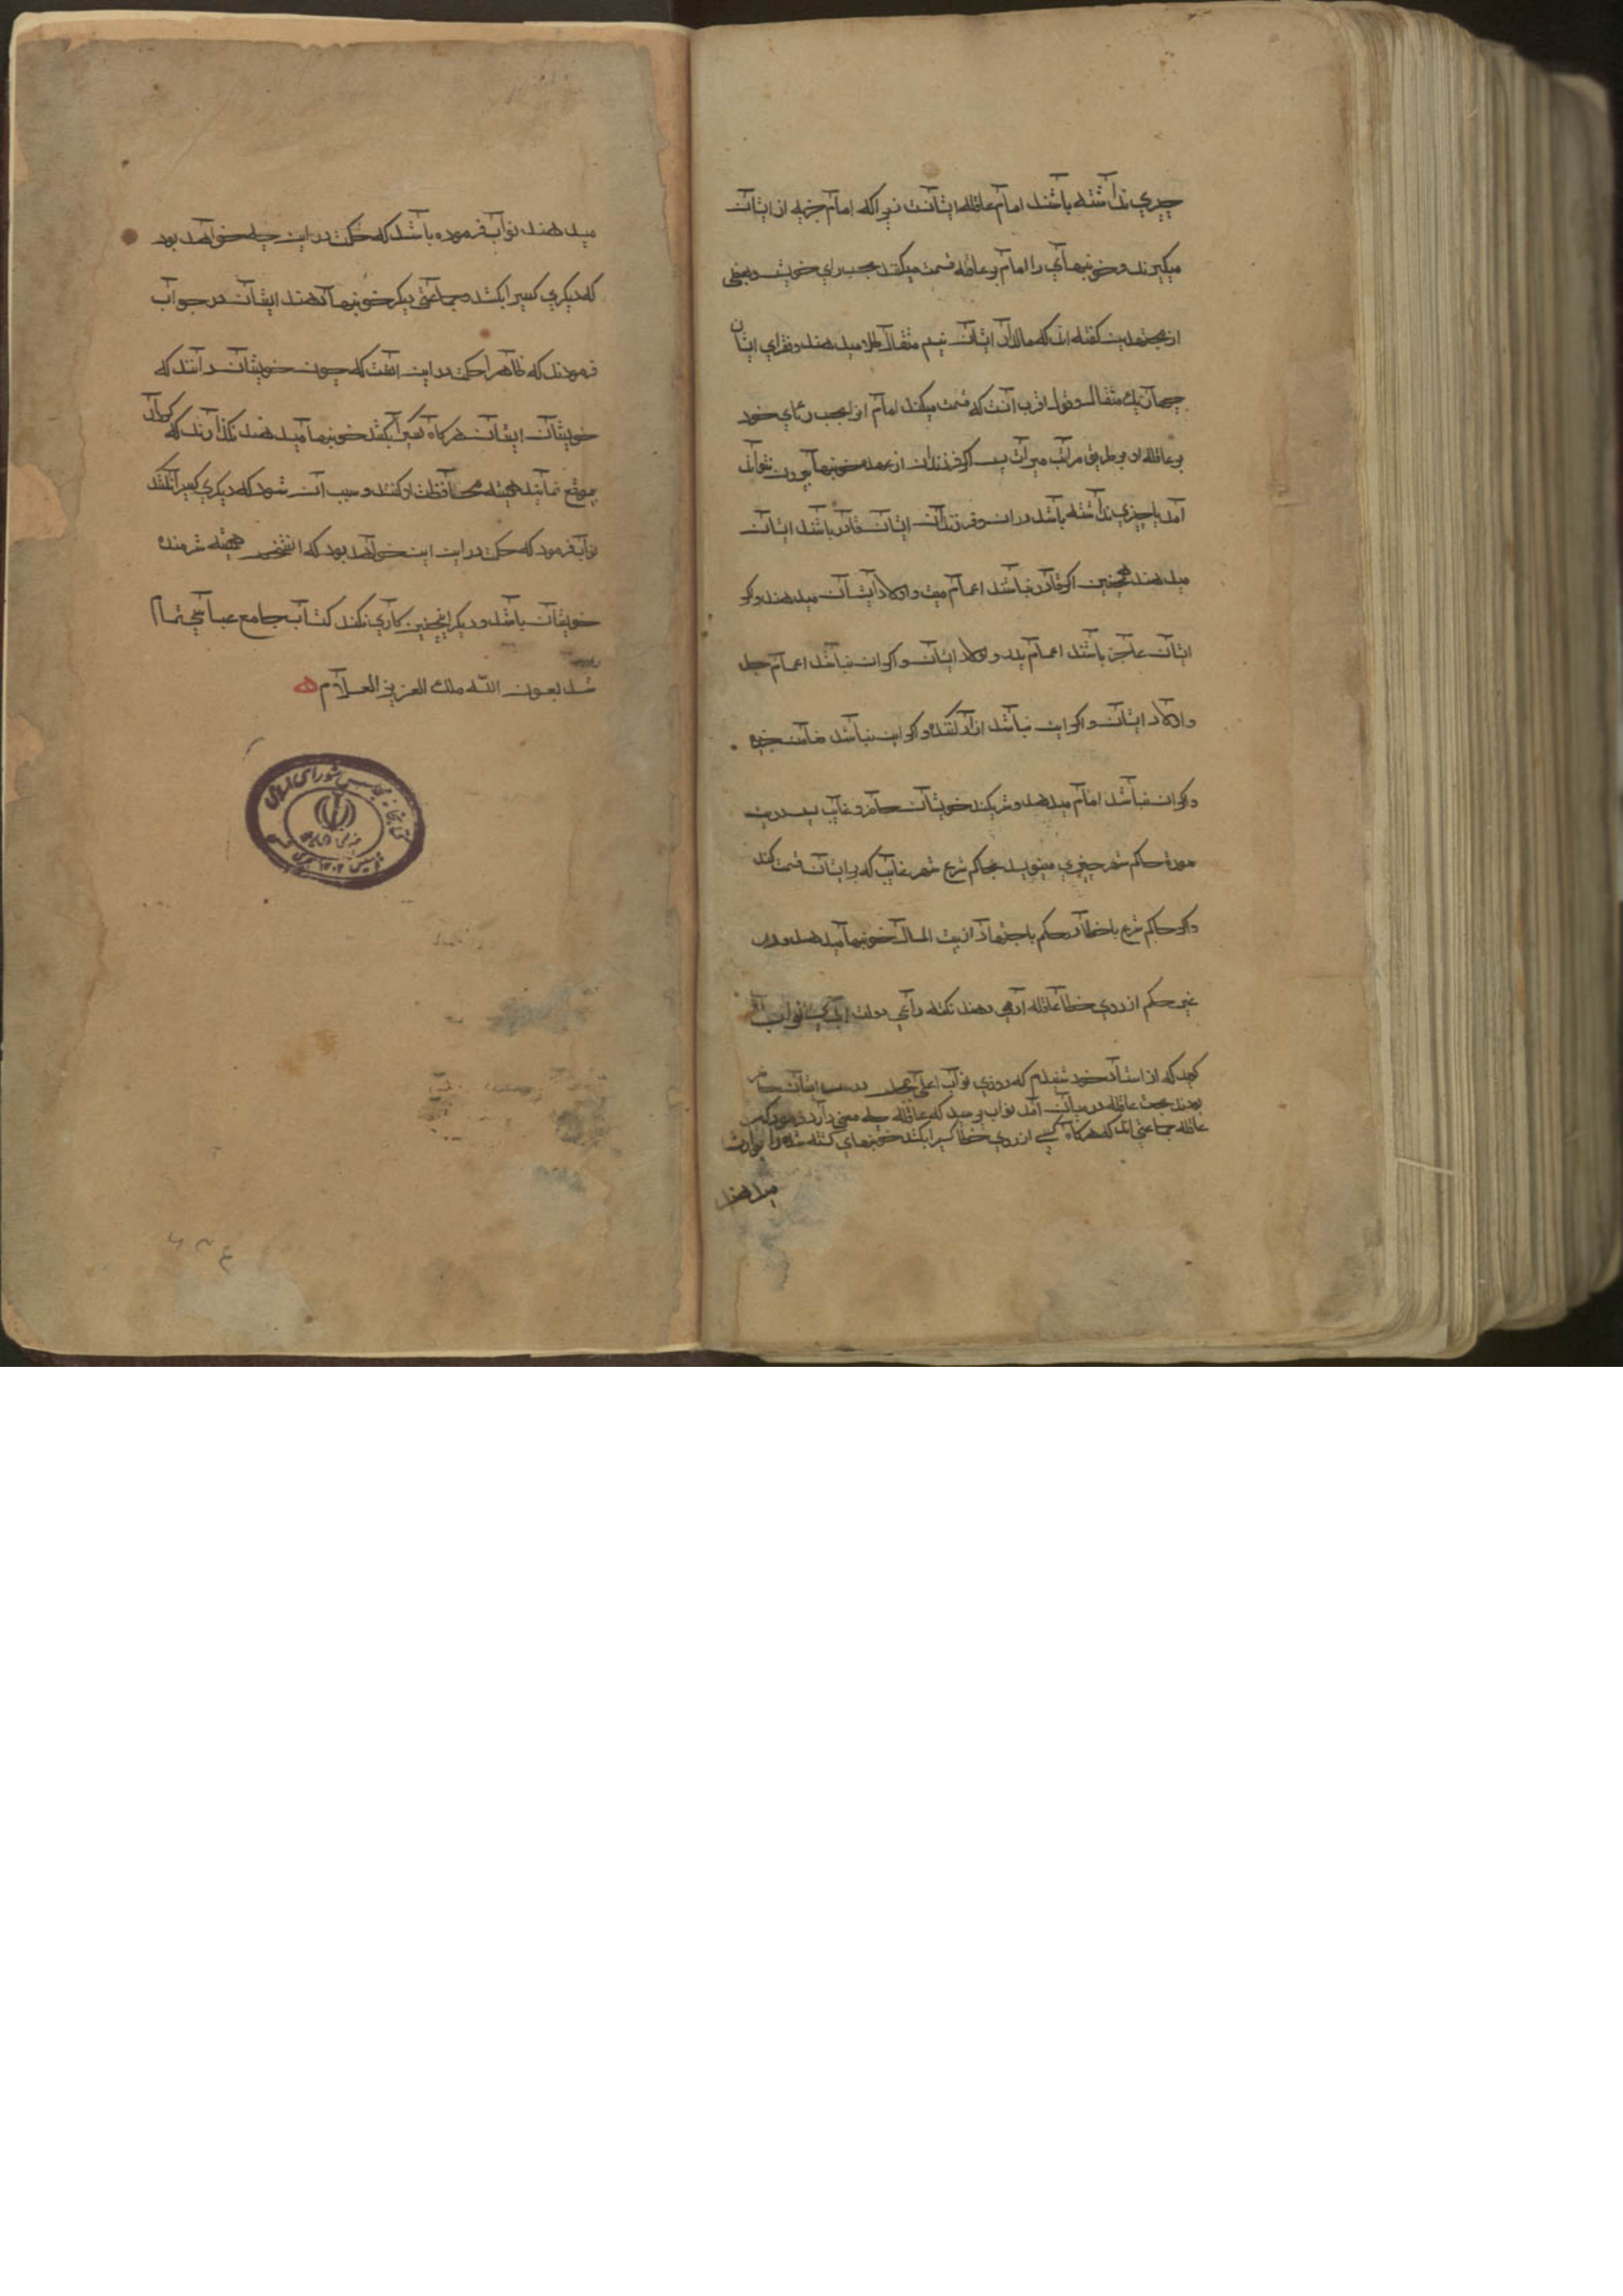 چیزی نداشته باشند امام عاقله ایشانست زیرا که امام جزیه از ایشان
میگیرند و خونبهای را امام بر عاقله قسمت میکند بحسب رای خویش و بعضی
از مجتهدین گفته اند که مالدار ایشان نیم مثقال طلا میدهند و فقرای ایشان
چهار یک مثقال و قول اقرب آنست که قسمت میکند امام انرا بحسب رای خود
بر عاقله او بر طریق مراتب میراث پس اگر فرزندان از عهده خونبها بیرون نتواند
آمد یا چیزی نداشته باشد در ان و فرزندان ایشان قادر باشند ایشان
میدهند همچنین اگر قادر نباشند اعمام میت و اولاد ایشان میدهند و اگر
ایشان عاجز باشند اعمام پدر و اولاد ایشان و اگر ان نباشند اعمام جد
و اولاد ایشان و اگر این نباشد ازاد کننده و اگر این نباشد ضامن جریره
و اگر ان نباشد امام میدهد و شریکند خویشان حاضر و غایب پس درین
صورة حاکم شهر چیزی مینویسد بحاکم شرع شهر غایب که بر ایشان قسمت کند
و اگر حاکم شرع با خطا در حکم یا اجتهاد از بیت المال خونبها میدهد و در
غیر حکم از روی خطا عاقله او می دهند نکته داعی دولت نواب
گوید که از استاد خود شنیدم که روزی نواب اعلی در ایشان حاضر
بودند بحث عاقله در میان آمد نواب پرسید که عاقله چه معنی دارد فرمود که
عاقله جماعتی اند که هرگاه کسی از روی خطا کسیرا بکشد خونبهای کشته شده را بوارث
میدهند
میدهند نواب فرموده باشد که حکمت در این چه خواهد بود
که دیگری کسیرا بکشد و جماعتی دیگر خونبها دهند ایشان در جواب
فرمودند که ظاهرا حکمت در این آنست که چون خویشان دانند که
خویشان ایشان هرگاه کسیرا بکشد خونبها میدهند نگذارند که کردار
بیموقع نمایند همیشه محافظت او کنند و سبب آن شود که دیگری کسیرا نکشد
نواب فرمود که حکمت در این این خواهد بود که انشخص همیشه شرمنده
خویشان باشد و دیگر اینچنین کاری نکند کتاب جامع عباسی تمام
شد بعون الله ملک العزیز العلام
کتابخانه مجلس شورای اسلامی